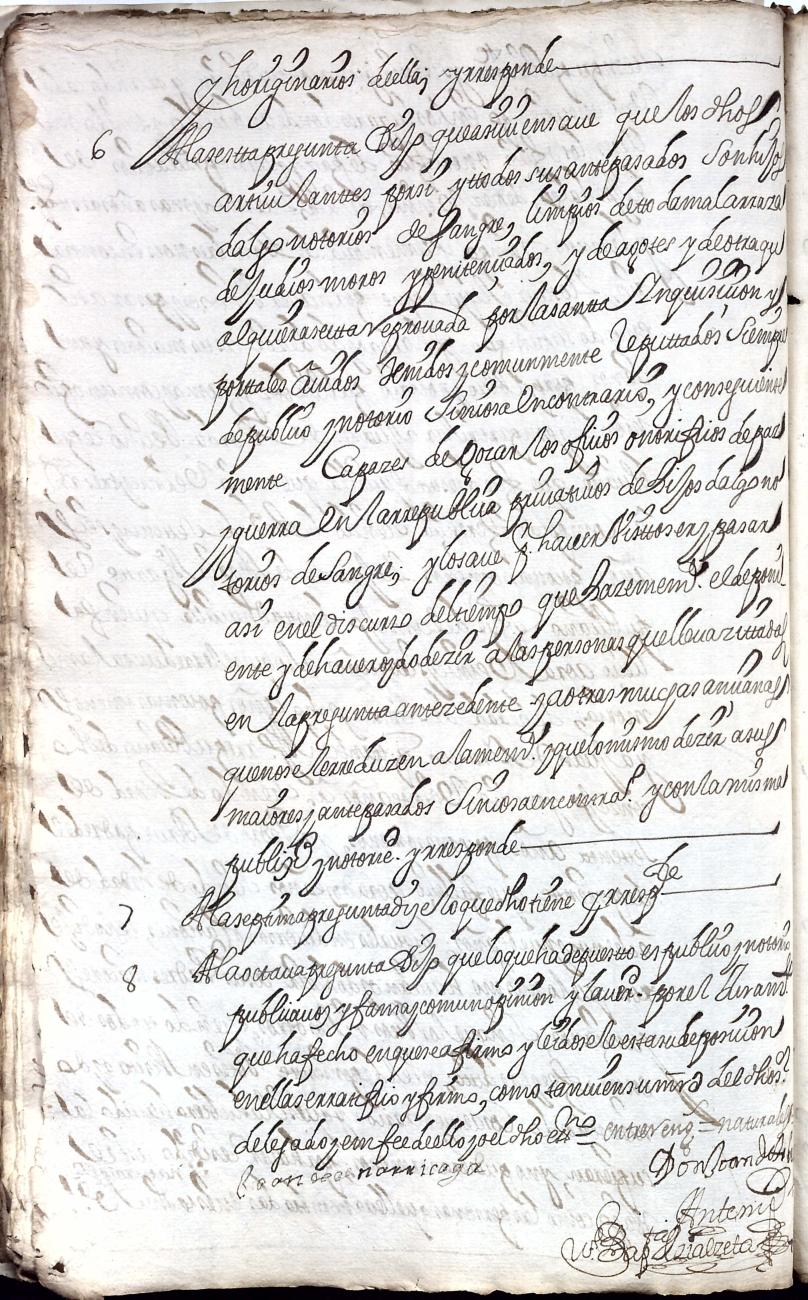 y horiginarios de ella; y rresponde
6 A la sestta pregunta Dijo que asimiensmo que los dhos
articulanttes por si y ttodos sus antepasados son hijos
dalgo notorios de sangre, limpios de tto da mala rraza
de Judios moros y penitençiados, y de agotes y de otra qu
alquiera setta reprouada por la santta Inquisiçion y
por tales auidos tenidos y comunmente Reputtados siempre
de publico y notorio sin cosa en contrario, y consiguiente
mente Capazes de Gozar los ofiçios onorifiços de paz
y guerra en la rrepublica priuatiuos de Hijos dalgo no
torios de Sangre, y lo saue por hauer Visttoser y pasar
asi en el discurso del tiempo que Haze mem.ª el depon
ente y de hauer oydo dezir a las personas que lleva zittadas
en la pregunta antezedente y a otras muchas ançianas
que no se le rreduzen a la mem.ª y que lo mismo dezir a sus
maiores y antepasados Sin cosa en contra.º y con la misma
publiz.d y notorie.d y rresponde
7 A la septima pregunta dijo lo que dho tiene y rresp.de
8 A la octaua pregunta Dijo que lo que ha depuesto es publico y notorio
publica voz y fama y comun opinion y la uer.d por el Juram.to
que ha fecho en que se afirmo y leidosele esta su deposiçion
en ella se rratifico y firmo, como tanuien su mrd del dho s.r
delegado y en fee de ello yo el dho ess.no entre reng.s = naturales
Joan de Narricaga Don Joan de
Antemi
Bap.ta Lizialzeta